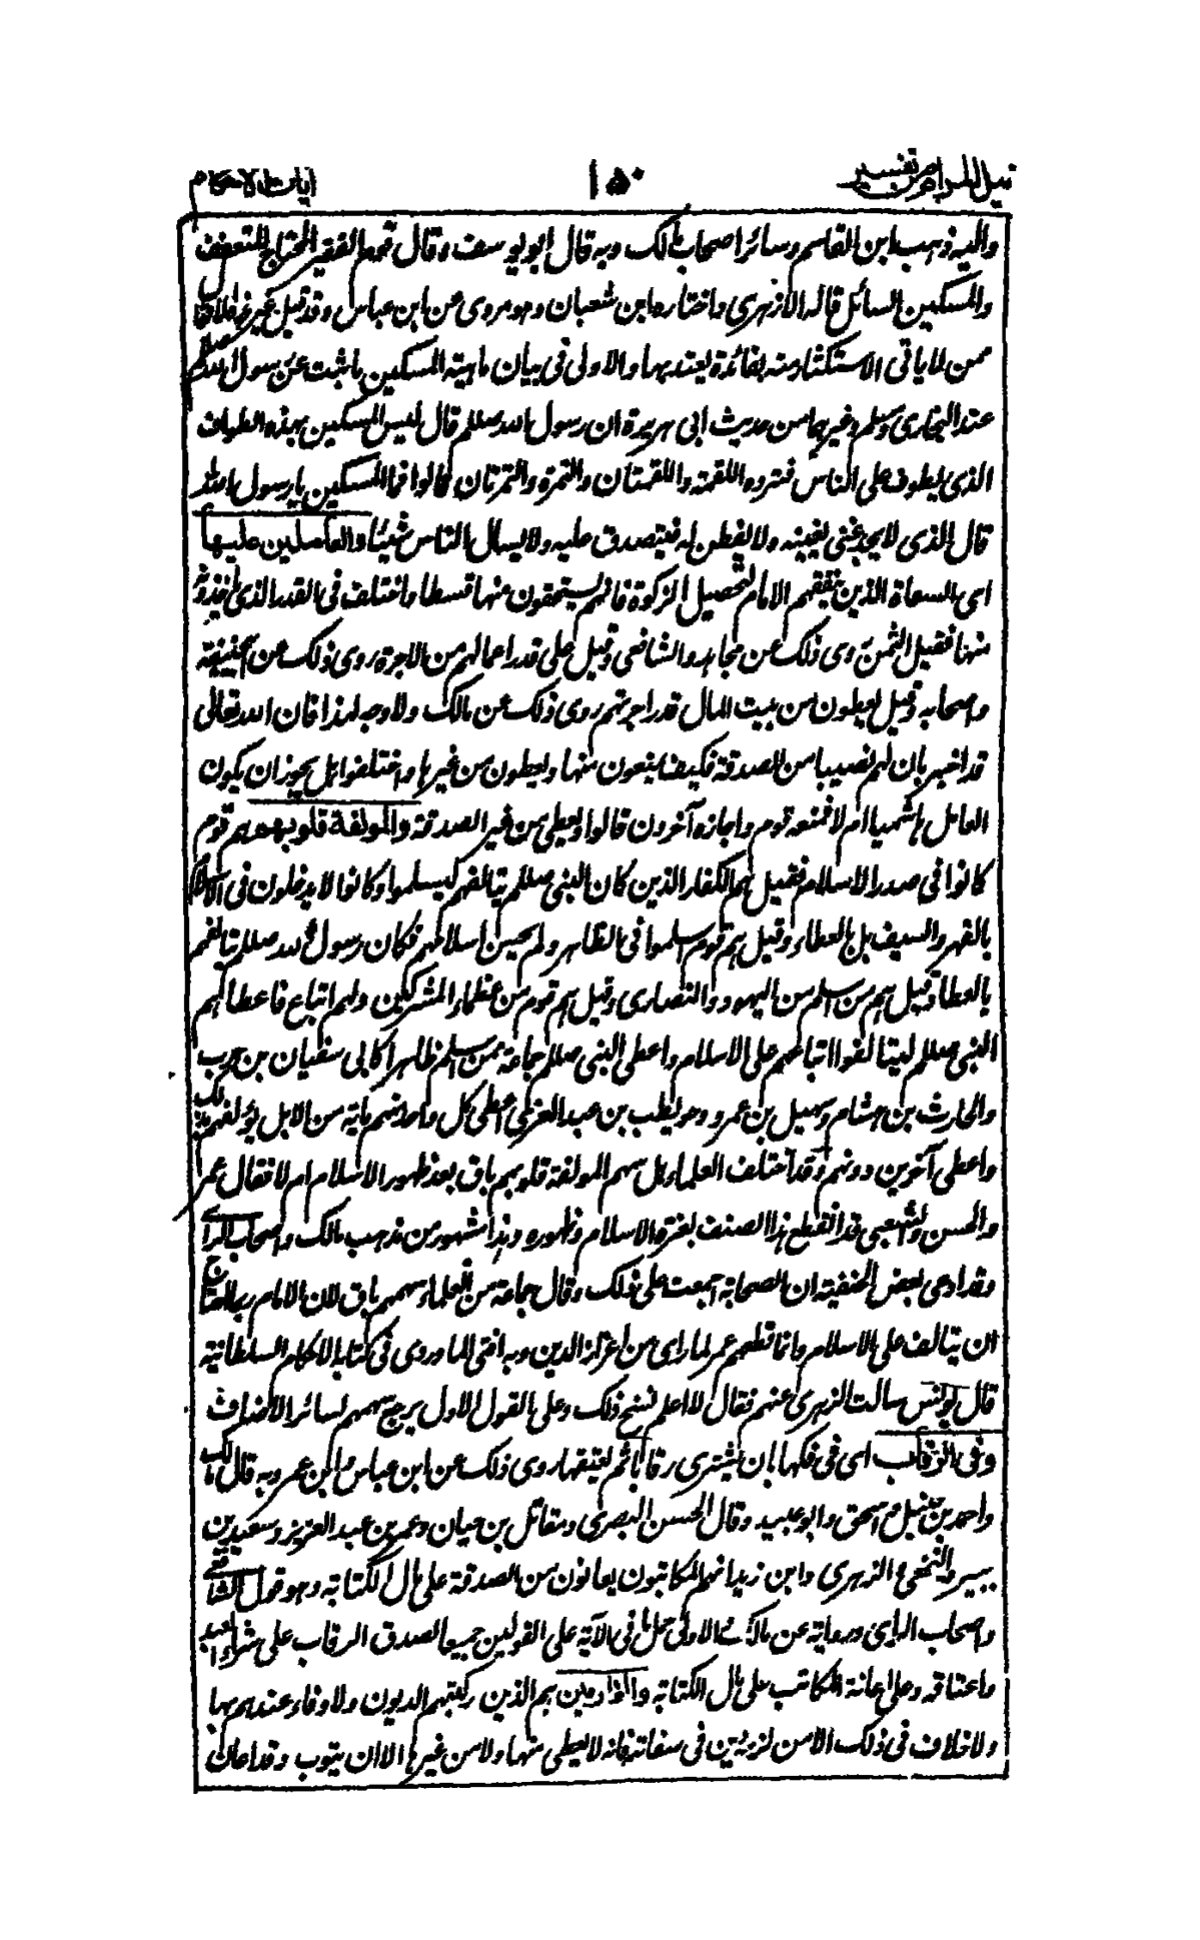 نيل المرام من تفسير ١٥٠ آيات الاحكام
واليه ذهب ابن القاسم وسائر اصحاب مالك وبه قال ابو يوسف وقال قوم الفقير المحتاج المتعفف
والمسكين السائل قاله الازهري واختاره ابن شعبان وهو مروى عن ابن عباس وقد قيل غير هذه الاقوال
ممن لا ياتى الاستكثار منه بفائدة يعتد بها والاولى فى بيان ماهية المسكين ما ثبت عن رسول الله صلعم
عند البخارى ومسلم وغيرهما من حديث ابى هريرة ان رسول الله صللم قال ليس المسكين بهذه الطواف
الذى يطوف على الناس فترده اللقمة واللقمتان والتمرة والتمرتان قالوا فما المسكين يا رسول الله
قال الذى لا يجد غنى يغنيه ولا يفطن له فيتصدق عليه ولا يسال الناس شيئا والعاملين عليها
اى السعاة الذين يبعثهم الامام لتحصيل الزكوة فانهم يستحقون منها قسطا واختلف فى القدر الذى ياخذونه
منها فقيل الثمن روى ذلك عن مجاهد والشافعى وقيل على قدر اعمالهم من الاجرة روى ذلك عن ابى حنيفة
واصحابه وقيل يعطون من بيت المال قدر اجرتهم روى ذلك عن مالك ولا وجه لهذا فان الله تعالى
قد اخبر بان لهم نصيبا من الصدقة فكيف يمنعون منها ويعطون من غيرها واختلفوا هل يجوز ان يكون
العامل هاشميا ام لا فمنعه قوم واجازه آخرون قالوا ويعطى من غير الصدقة والمولفة قلوبهم هم قوم
كانوا فى صدر الاسلام فقيل هم الكفار الذين كان النبى صللم يتالفهم ليسلموا وكانوا لا يدخلون فى الاسلام
بالقهر والسيف بل بالعطاء وقيل هم قوم اسلموا فى الظاهر ولم يحسن اسلامهم فكان رسول الله صللم يتالفهم
بالعطا وقيل هم من اسلم من اليهود والنصارى وقيل هم قوم من عظماء المشركين ولهم اتباع فاعطاهم
النبى صللم ليتالفوا اتباعهم على الاسلام واعطى النبى صللم جماعة ممن اسلم ظاهرا كابى سفيان بن حرب
والحارث بن هشام وسهيل بن عمرو وحويطب بن عبد العزى اعطى كل واحد منهم ماية من الابل يؤلفهم بذلك
واعطى آخرين دونهم وقد اختلف العلماء هل سهم المولفة قلوبهم باق بعد ظهور الاسلام ام لا فقال عمر
والحسن والشعبى قد انقطع هذا الصنف بعزة الاسلام وظهوره وهذا مشهور من مذهب مالك واصحاب الراى
وقد ادعى بعض الحنفية ان الصحابة اجمعت على ذلك وقال جماعة من العلماء سهمهم باق لان الامام ربما احتاج
ان يتالف على الاسلام وانما قطعهم عمر لما راى من اعزاز الدين وبه افتى الماوردى فى كتابه الاحكام السلطانية
قال يونس سالت الزهرى عنهم فقال لا اعلم نسخ ذلك وعلى القول الاول يرجع سهمهم لسائر الاصناف
وفى الرقاب اى فى فكها بان يشترى رقابا ثم يعتقها روى ذلك عن ابن عباس وابن عمر وبه قال مالك
واحمد بن حنبل واسحق وابو عبيد وقال الحسن البصرى ومقاتل بن حيان وعمر بن عبد العزيز وسعيد بن
جبير والنخعى والزهرى وابن زيد انهم المكاتبون يعانون من الصدقة على مال الكتابة وهو قول الشافعى
واصحاب الراى ورواية عن مالك والاولى حمل ما فى الآية على القولين جميعا لصدق الرقاب على شراء العبد
واعتاقه وعلى اعانة المكاتب على مال الكتابة والغارمين هم الذين ركبتهم الديون ولا وفاء عندهم بها
ولا خلاف فى ذلك الا من لزمه دين فى سفاهة فانه لا يعطى منها ولا من غيرها الا ان يتوب وقد اعان